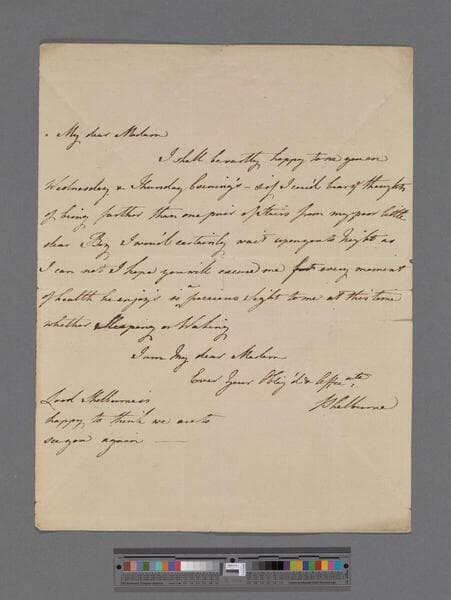 My dear Madam
I shall be vastly happy to see you on
Wednesday & Thursday Evenings - & if I cou'd bear ye thoughts
of being farther than one pair of stairs from my poor little
dear Boy I wou'd certainly wait upon you to Night as
I can not I hope you will excuse me every moment
of health he enjoys is a precious sight to me at this time
whether Sleeping or Waking
I am My dear Madam
Ever Your Oblig'd & Affecate
S Shelburne
Lord Shelburne is
happy to think we are to
see you again